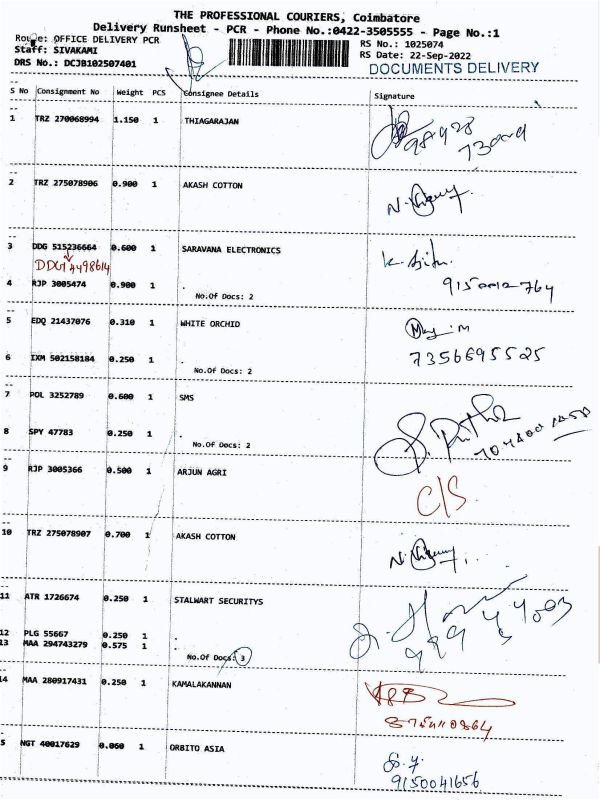 THE PROFESSIONAL COURIERS, Coimbatore
Delivery Runsheet - PCR - Phone No.:0422-3505555 - Page No.:1
Route: OFFICE DELIVERY PCR
Staff: SIVAKAMI
DRS No.: DCJB102507401
RS No.: 1025074
RS Date: 22-Sep-2022
DOCUMENTS DELIVERY
S No Consignment No Weight PCS Consignee Details Signature
1 TRZ 270068994 1.150 1 THIAGARAJAN
2 TRZ 275078906 0.900 1 AKASH COTTON
3 DDG 515236664 0.600 1 SARAVANA ELECTRONICS
DDG14498614
4 RJP 3005474 0.900 1 .
No.Of Docs: 2
9150012764
5 EDQ 21437076 0.310 1 WHITE ORCHID
6 IXM 502158184 0.250 1 .
No.Of Docs: 2
7356695525
7 POL 3252789 0.600 1 SMS
8 SPY 47783 0.250 1 .
No.Of Docs: 2
9 RJP 3005366 0.500 1 ARJUN AGRI
C/S.
10 TRZ 275078907 0.700 1 AKASH COTTON
11 ATR 1726674 0.250 1 STALWART SECURITYS
12 PLG 55667 0.250 1 .
13 MAA 294743279 0.575 1 .
No.Of Docs: 3
14 MAA 280917431 0.250 1 KAMALAKANNAN
5 NGT 40017629 0.060 1 ORBITO ASIA
9150041656